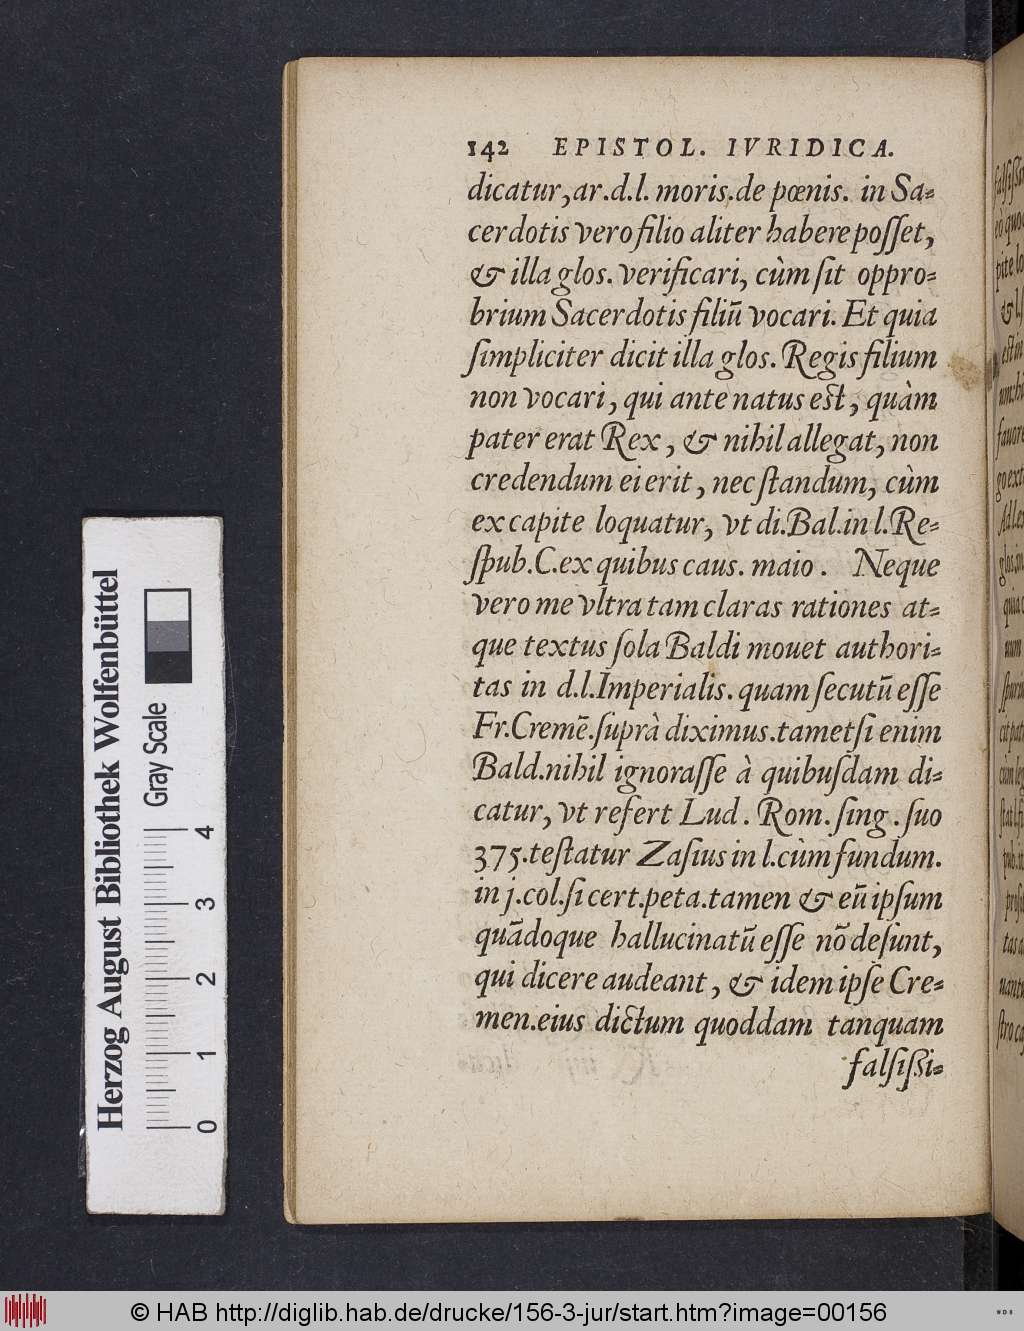 142 EPISTOL. IVRIDICA.
dicatur, ar.d.l. moris.de pœnis. in Sa-
cerdotis vero filio aliter habere posset,
& illa glos. verificari, cùm sit oppro-
brium Sacerdotis filiū vocari. Et quia
simpliciter dicit illa glos. Regis filium
non vocari, qui ante natus est, quàm
pater erat Rex, & nihil allegat, non
credendum ei erit, nec standum, cùm
ex capite loquatur, vt di.Bal.in l.Re-
spub.C.ex quibus caus. maio. Neque
vero me vltra tam claras rationes at-
que textus sola Baldi mouet authori-
tas in d.l.Imperialis. quam secutū esse
Fr.Cremē.suprà diximus.tametsi enim
Bald.nihil ignorasse à quibusdam di-
catur, vt refert Lud. Rom. sing. suo
375.testatur Zasius in l.cùm fundum.
in j.col.si cert.peta.tamen & eū ipsum
quādoque hallucinatū esse nō desunt,
qui dicere audeant, & idem ipse Cre-
men.eius dictum quoddam tanquam
falsissi-
Herzog August Bibliothek Wolfenbüttel
Gray Scale
0 1 2 3 4
© HAB http://diglib.hab.de/drucke/156-3-jur/start.htm?image=00156